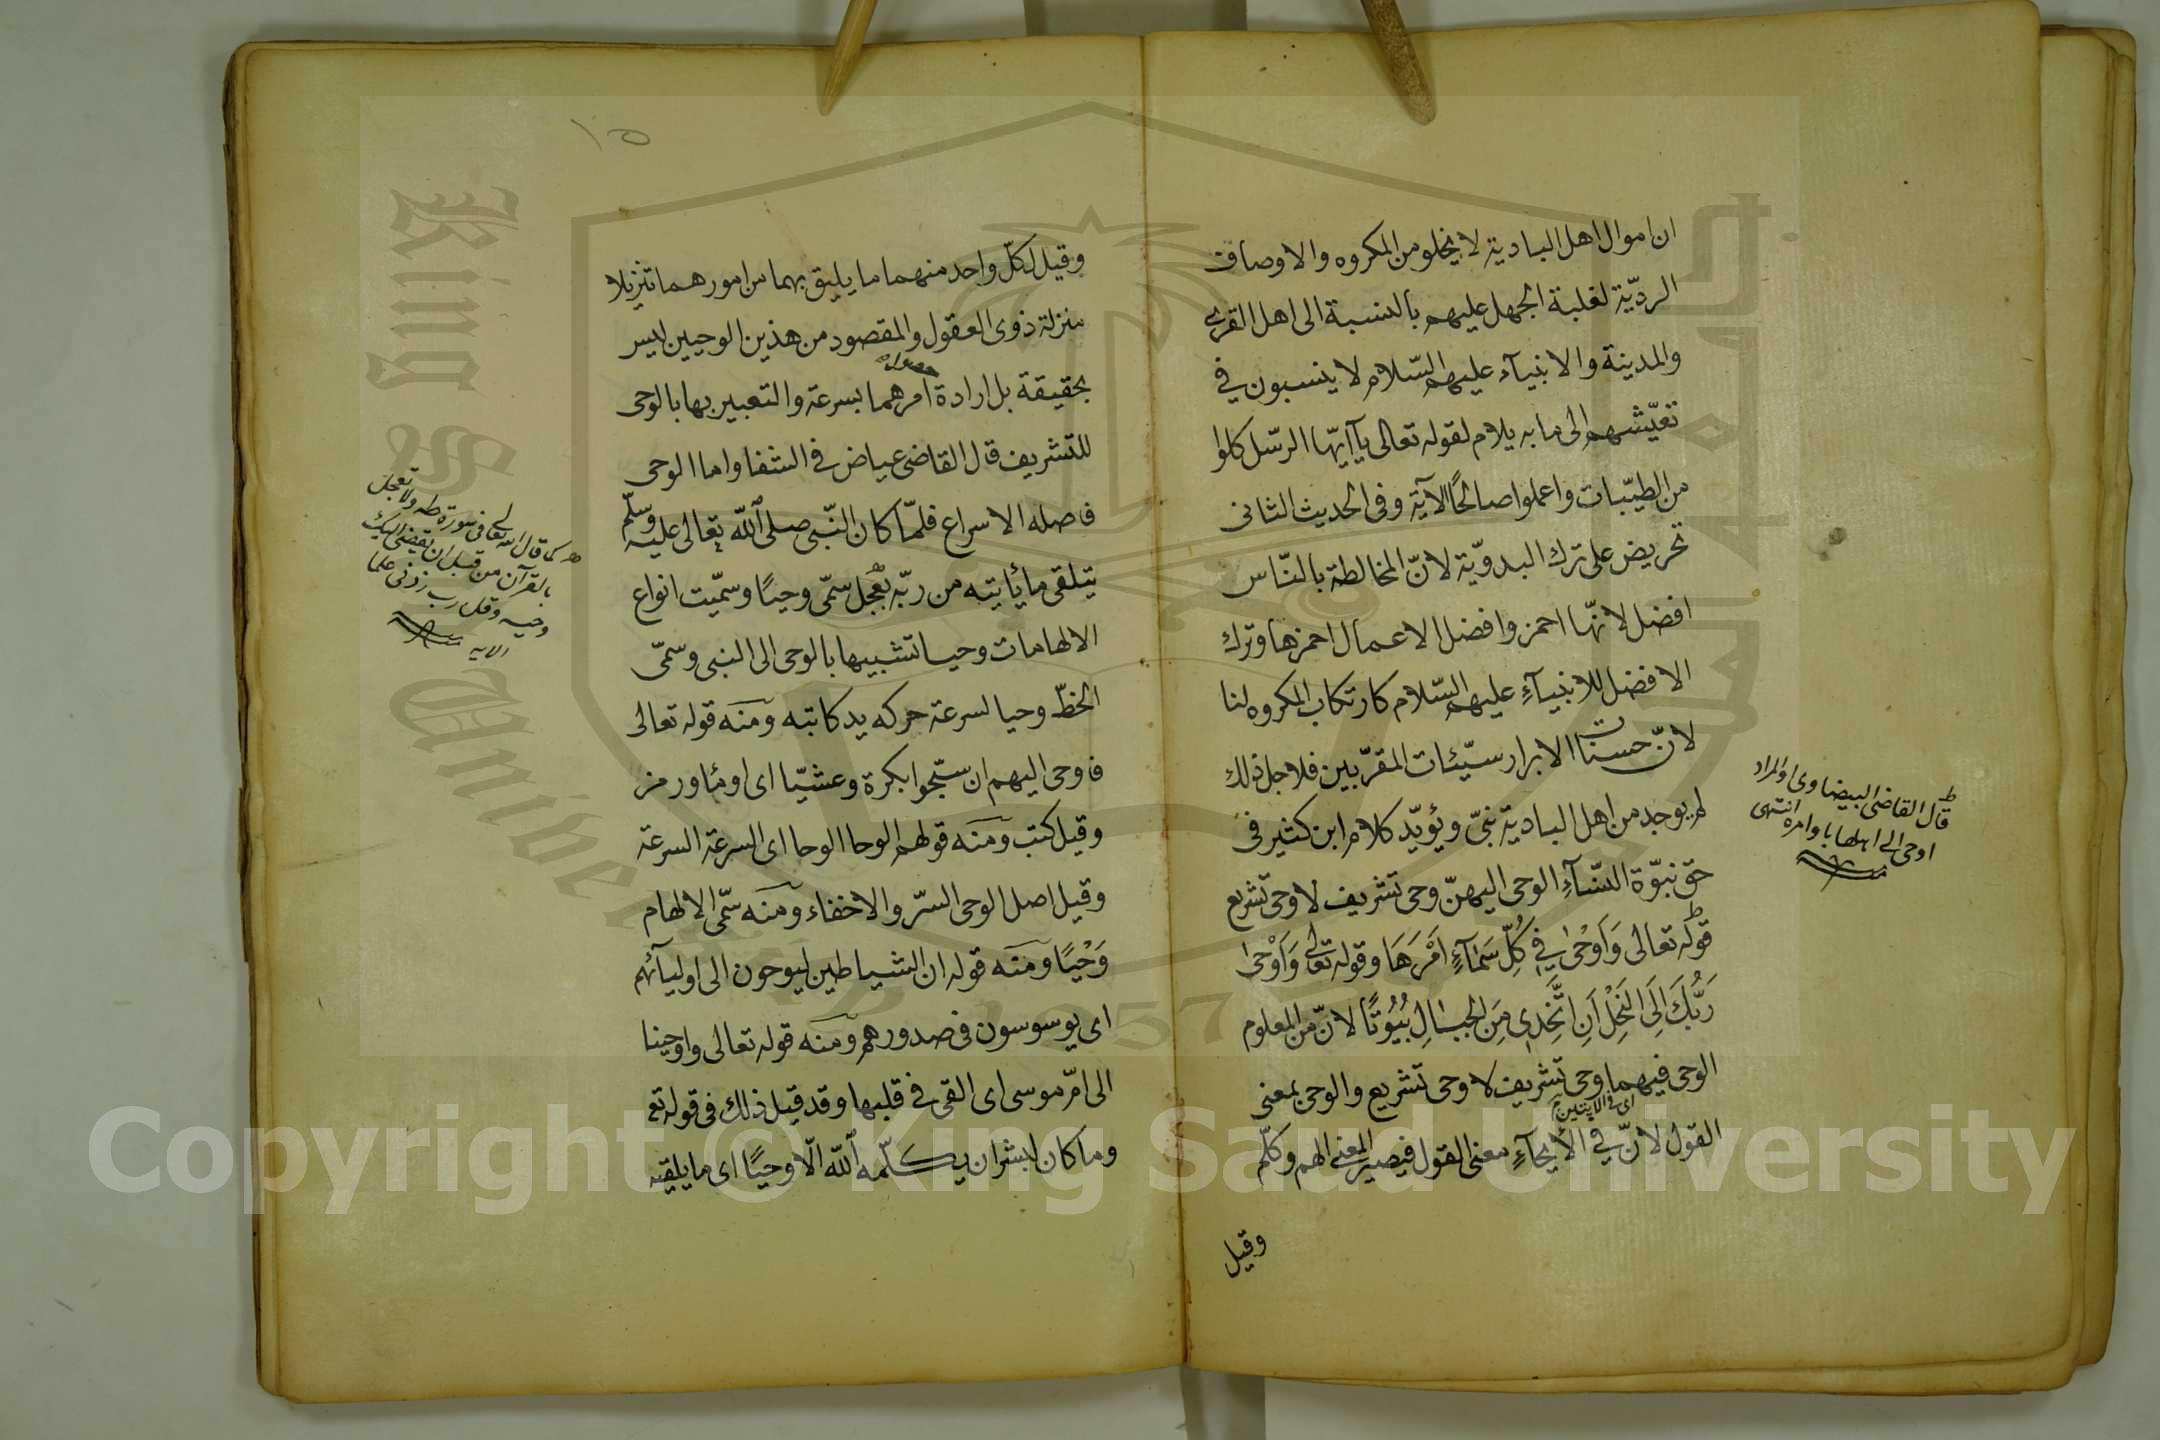 ان اموال اهل البادية لا يخلو من المكروه والاوصاف
الرديّة لغلبة الجهل عليهم بالنسبة الى اهل القرى
والمدينة والانبيآء عليهم السّلام لا ينسبون في
تعيّشهم الى ما به يلام لقوله تعالى يآ ايّها الرّسل كلوا
من الطيّبات واعملوا صالحًا الآية وفى الحديث الثانى
تحريض على ترك البدويّة لانّ المخالطة بالنّاس
افضل لانّها احمز وافضل الاعمال احمزها وترك
الافضل للانبيآءِ عليهم السّلام كارتكاب المكروه لنا
لانّ حسنات الابرار سيّئات المقرّبين فلاجل ذلك
لم يوجد من اهل البادية نبىّ ويؤيّد كلام ابن كثير فى
حق نبوّة النسآءِ الوحى اليهنّ وحى تشريف لا وحى تشريع
قوله تعالى وَاَوْحٰى فِي كُلِّ سَمَآءٍ اَمْرَهَا وقوله تعالى وَاَوْحٰى
رَبُّكَ اِلَى النَّحْلِ اَنِ اتَّخِذِى مِنَ الجِبَالِ بُيُوتًا لانّ من المعلوم
الوحى فيهما وحى تشريف لا وحى تشريع والوحى بمعنى
اى فى الآيتين
القول لانّ في الأيحآءِ معنى القول فيصير المعنى الهم وكلّم
وقيل
قال القاضى البيضاوى والمراد
اوحى الى اهلها باوامره انتهى
١٥
وقيل لكلّ واحد منهما ما يليق بهما من امورهما تنزيلا
منزلة ذوى العقول والمقصود من هذين الوحيين ليس
حصول
بحقيقة بل ارادة امرهما بسرعة والتعبير بها بالوحى
للتشريف قال القاضى عياض فى الشفا واما الوحى
فاصله الاسراع فلمّا كان النّبى صلى الله تعالى عليه وسلّم
يتلقى ما يأتيه من ربّه بعجل سمّى وحيًا وسمّيت انواع
الالهامات وحيا تشبيها بالوحى الى النبى وسمّى
الخطّ وحيا لسرعة حركه يد كاتبه ومنه قوله تعالى
فاوحى اليهم ان سبّحوا بكرة وعشيّا اى اومأ ورمز
وقيل كتب ومنه قولهم الوحا الوحا اى السرعة السرعة
وقيل اصل الوحى السرّ والاخفاء ومنه سمّى الالهام
وَحْيًا ومنه قوله ان الشياطين ليوحون الى اوليآئهم
اى يوسوسون فى صدورهم ومنه قوله تعالى واوحينا
الى امّ موسى اى القى فى قلبها وقد قيل ذلك فى قوله تع
وما كان لبشر ان يكلّمه الله الّا وحيًا اى ما يلقيه
كما قال الله تعالى فى سورة طه ولا تعجل
بالقرآن من قبل ان يقضى اليك
وحيه وقل رب زدنى علما
الايه
King Saud University
1957
Copyright © King Saud University